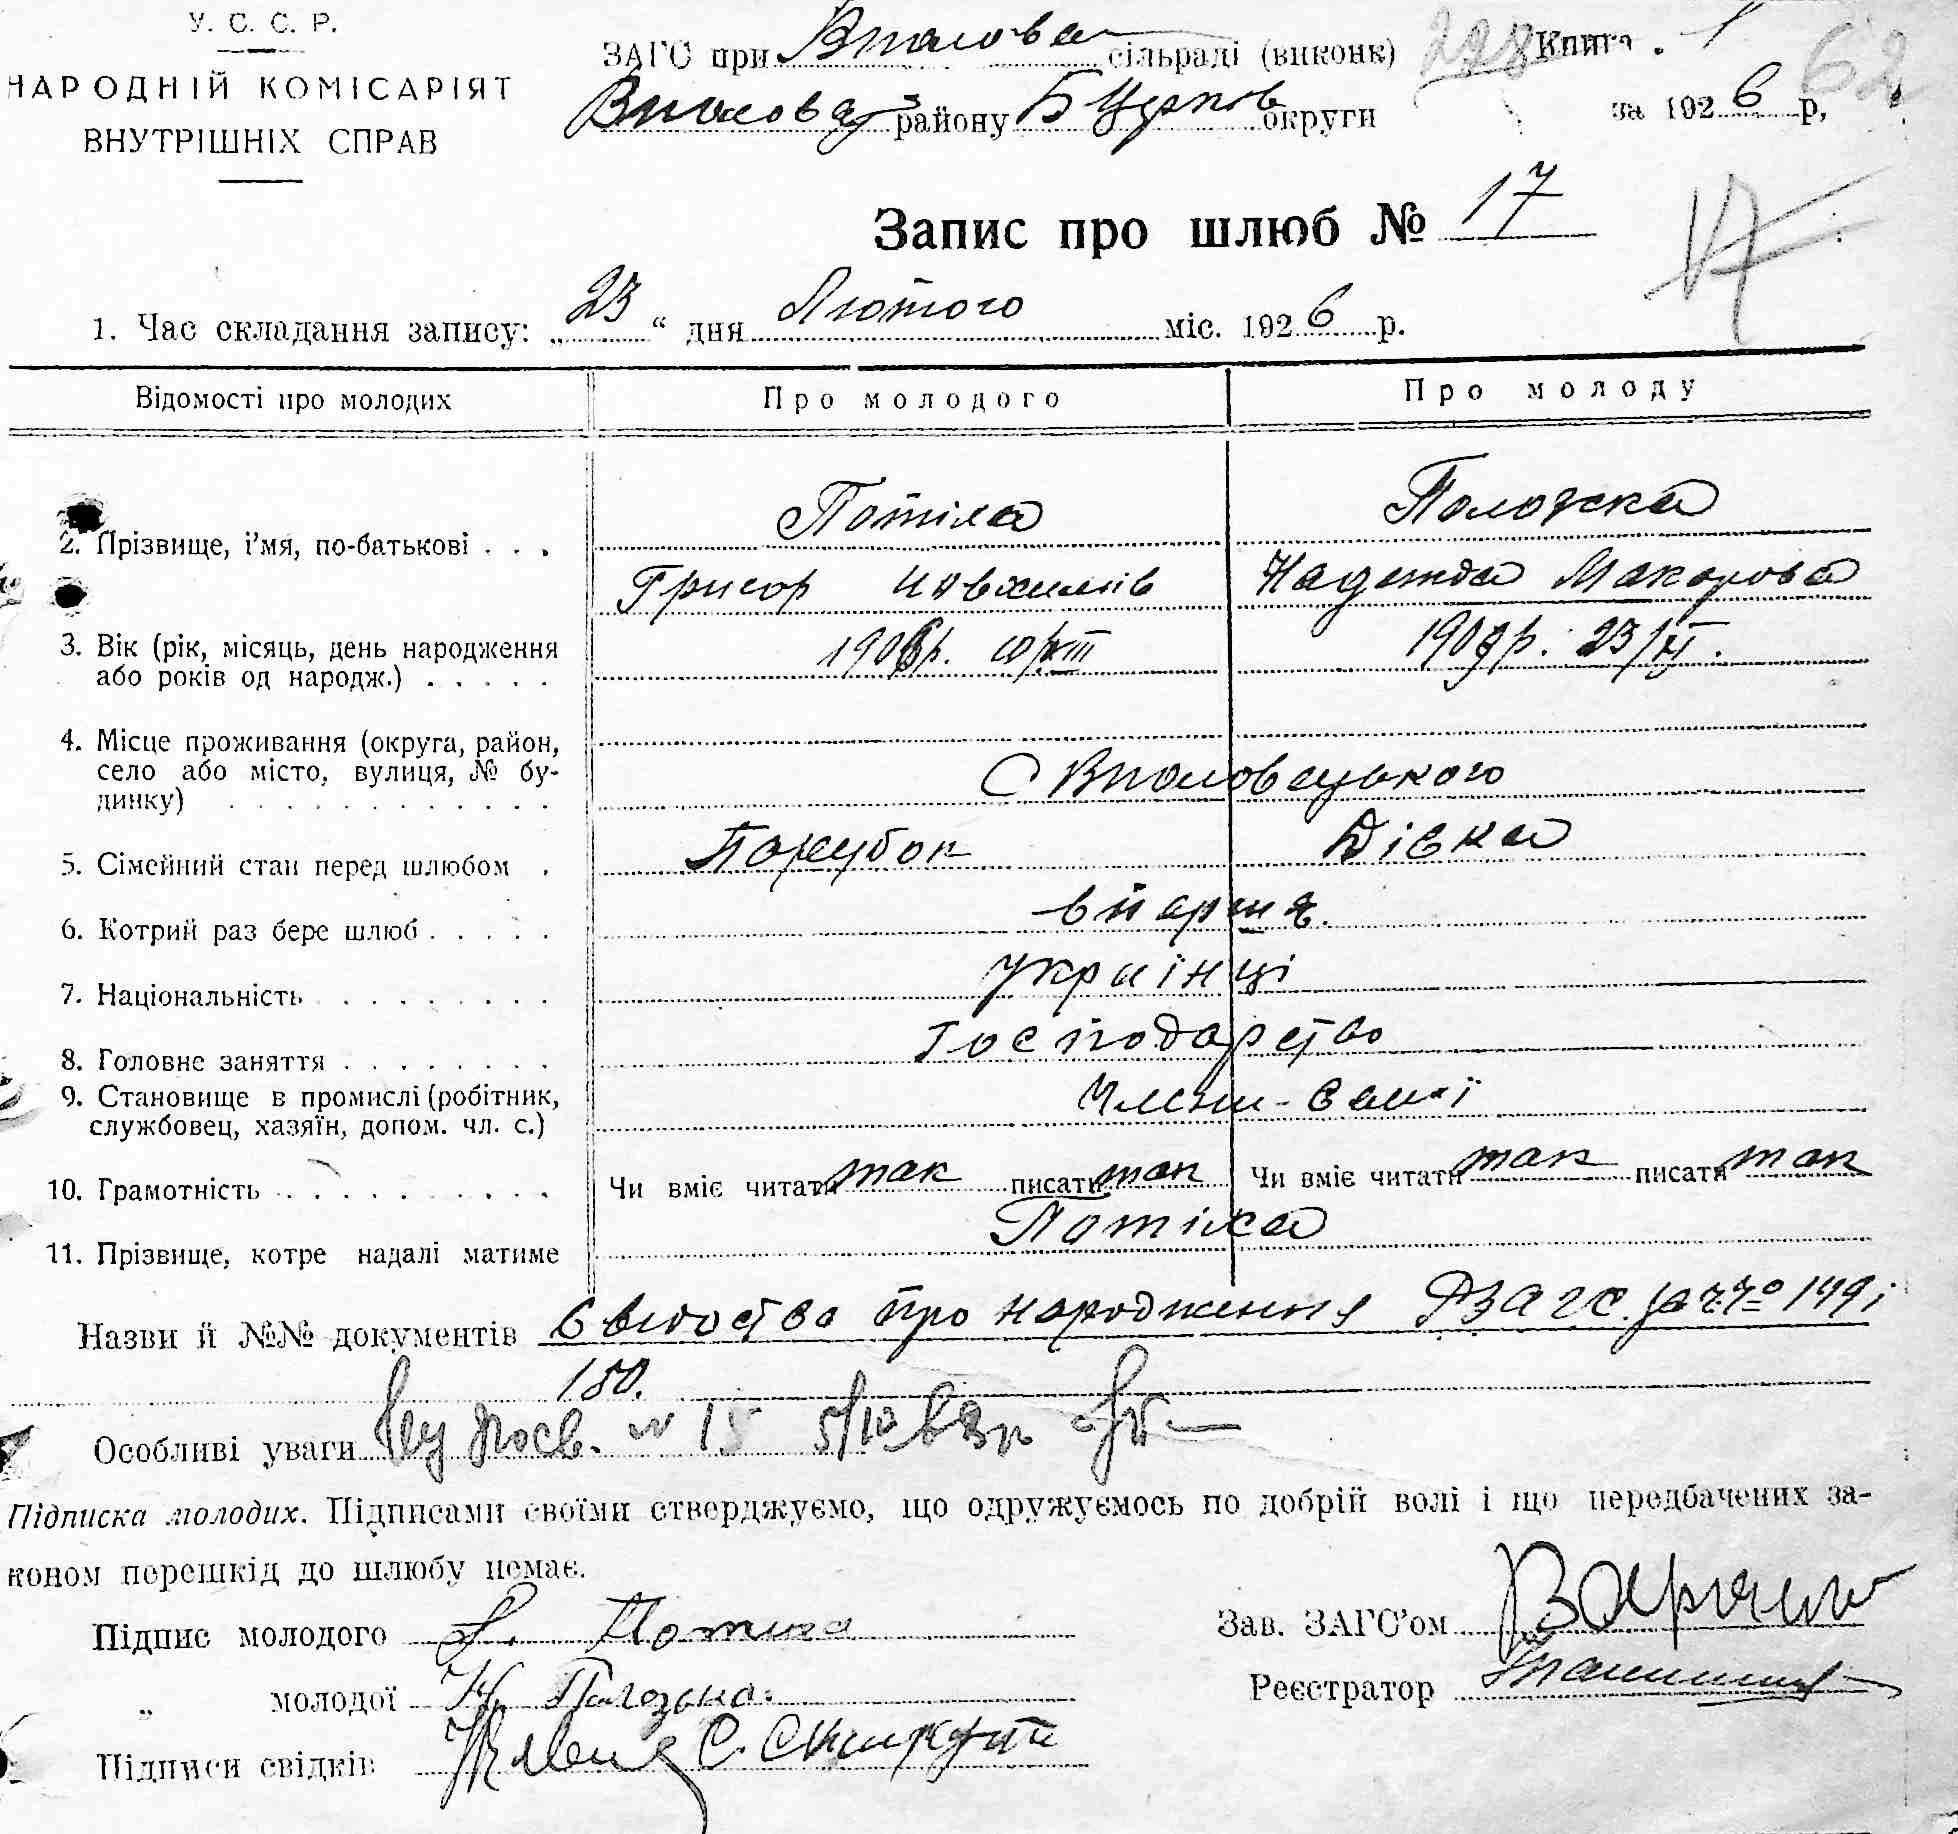 У. С. С. Р.
НАРОДНІЙ КОМІСАРІЯТ
ВНУТРІШНІХ СПРАВ
ЗАГС при Вполова сільраді (виконк) 228 Книга 1 62
району Б Церків округи за 1926 р,
Запис про шлюб № 17
17
1. Час складання запису: „23“ дня Лютого міс. 1926 р.
Відомості про молодих Про молодого Про молоду
Потіха
2. Прізвище, і'мя, по-батькові . . .
Григор Надежда Макарова
3. Вік (рік, місяць, день народження 190
або років од народж.) . . . . .
4. Місце проживання (округа, район,
село або місто, вулиця, № бу-
динку) . . . . . . . . . . . .
С Вполовецького
5. Сімейний стан перед шлюбом . Парубок Дівка
6. Котрий раз бере шлюб . . . . . вперше.
7. Національність . . . . . . . . українці
8. Головне заняття . . . . . . . . Господарство
9. Становище в промислі (робітник, Члени
службовец, хазяїн, допом. чл. с.)
10. Грамотність . . . . . . . . . . Чи вміє читати так писати так Чи вміє читати так писати так
11. Прізвище, котре надалі матиме Потіха
Назви й №№ документів про народження 149 і
150.
Особливі уваги посв. № 15
Підписка молодих. Підписами своїми стверджуємо, що одружуємось по добрій волі і що передбачених за-
коном перешкід до шлюбу немає.
Підпис молодого Потіха Зав. ЗАГС'ом
„ молодої Н. Реєстратор
Підписи свідків С.